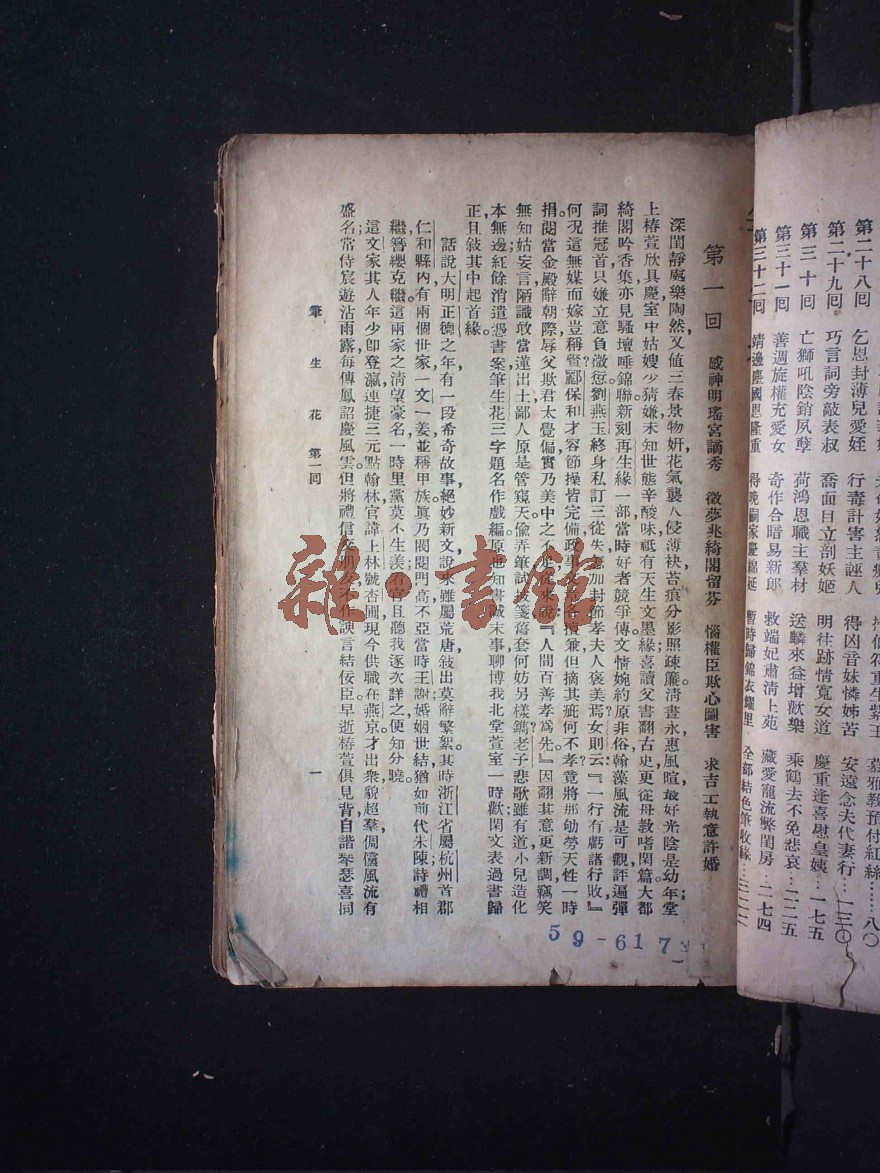 第二十八回 乞恩封薄兒愛姪
第二十九回 巧言詞旁敲表叔 行毒計害主誣人 得凶音妹憐姊苦 安遠念夫代妻行…一三〇
第三十回 亡獅吼陰銷夙孽 喬面目立剖妖姬 明往跡情寬女道 慶重逢喜慰皇姨…一七五
第三十一回 善調旋權充愛女 荷鴻恩職主羣材 送麟來益增歡樂 乘鶴去不免悲哀…二二五
第三十二回 靖邊塵國恩隆重 奇作合暗易新郎 救端妃肅清上苑 藏愛寵流弊閨房…二七四
得晚嗣家慶綿延 暫時歸錦衣耀里 全部結色筆收緣…三二二
第一回 感神明瑤宮謫秀 徵夢兆綺閣留芬 惱權臣欺心圖害 求吉士執意許婚
深閨靜處樂陶然，又値三春景物妍，花氣襲人侵薄袂，苔痕分影照疎簾。清晝永，惠風暄，最好光陰是幼年；堂
上椿萱欣具慶，室中姑嫂少猜嫌。未知世態辛酸味，祇有天生文墨緣，喜讀父書翻古史，更從母敎嗜閑篇。大都
綺閣吟香集，亦見騷壇唾錦聯，新刻再生緣一部，當時好者競爭傳。文情婉約原非俗，翰藻風流是可觀，評遍彈
詞推冠首，只嫌立意負微愆。劉燕玉終身私訂，三從失德加封節孝夫人，褒美焉？女則云：『一行有虧諸行敗』，
何况這無媒而嫁，豈稱賢？酈保和才容節操皆完備，政事文章各擅兼，但摘其疵何不孝，竟將那劬勞天性一時
捐。閱當金殿辭朝際，辱父欺君太覺偏，實乃美中之不足，從來說：『人間百善孝爲先』。因翻其意更新調，竊笑
無知姑妄言。陋識敢當蓮出土，鄙人原是管窺天。偷弄筆，試披箋，舊套何妨另樣鐫？老子悲歌雖有道，小兒造化
本無邊；紅餘消遣憑書案，筆生花三字題名作戲編。原也知書誡末事聊博我北堂萱室一時歡。閑文表過書歸
正，且敍其中起首緣。
話說大明正德之年，有一段希奇故事，絕妙新文，說來雖屬荒唐，敍出莫辭繁絮。其時浙江省屬杭州首郡
仁和縣內，有兩個世家，一文一姜，並稱甲族。眞乃閥閱門高，不亞當時王謝，婚姻世結，猶如前代朱陳；詩禮相
繼，簪纓克繼。這兩家之淸望豪名，一時里黨莫不生羨。看官且聽我逐次詳之，便知分曉。
這文家其人年少卽登瀛，連捷三元點翰林，官諱上林號杏圃，現今供職在燕京。才出衆，貌超羣，倜儻風流有
盛名，常侍宸遊沾雨露，每傳鳳詔慶風雲。但將禮信交朋友，不作諛言結佞臣。早逝椿萱俱見背，自諧琴瑟喜同
筆生花 第一回 一
59-617